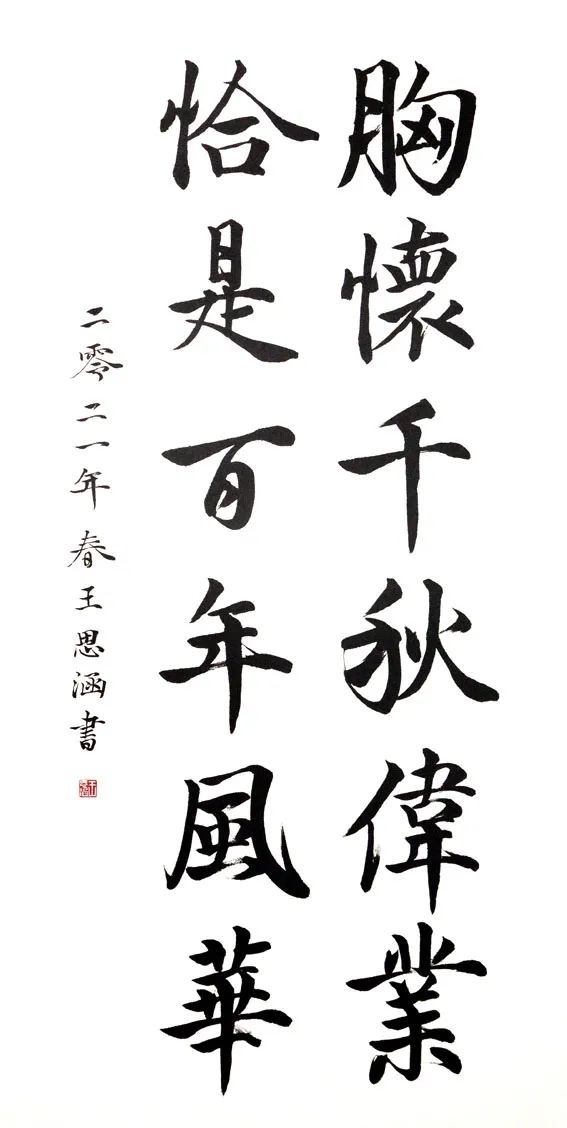 胸懷千秋偉業
恰是百年風華
二零二一年春王思涵書